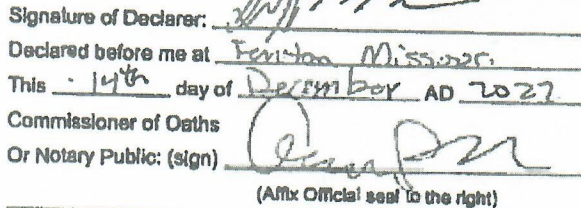 Signature of Declarer:
Declared before me at Fenton Missouri
This 14th day of December AD 2022
Commissioner of Oaths
Or Notary Public: (sign)
(Affix Official seal to the right)